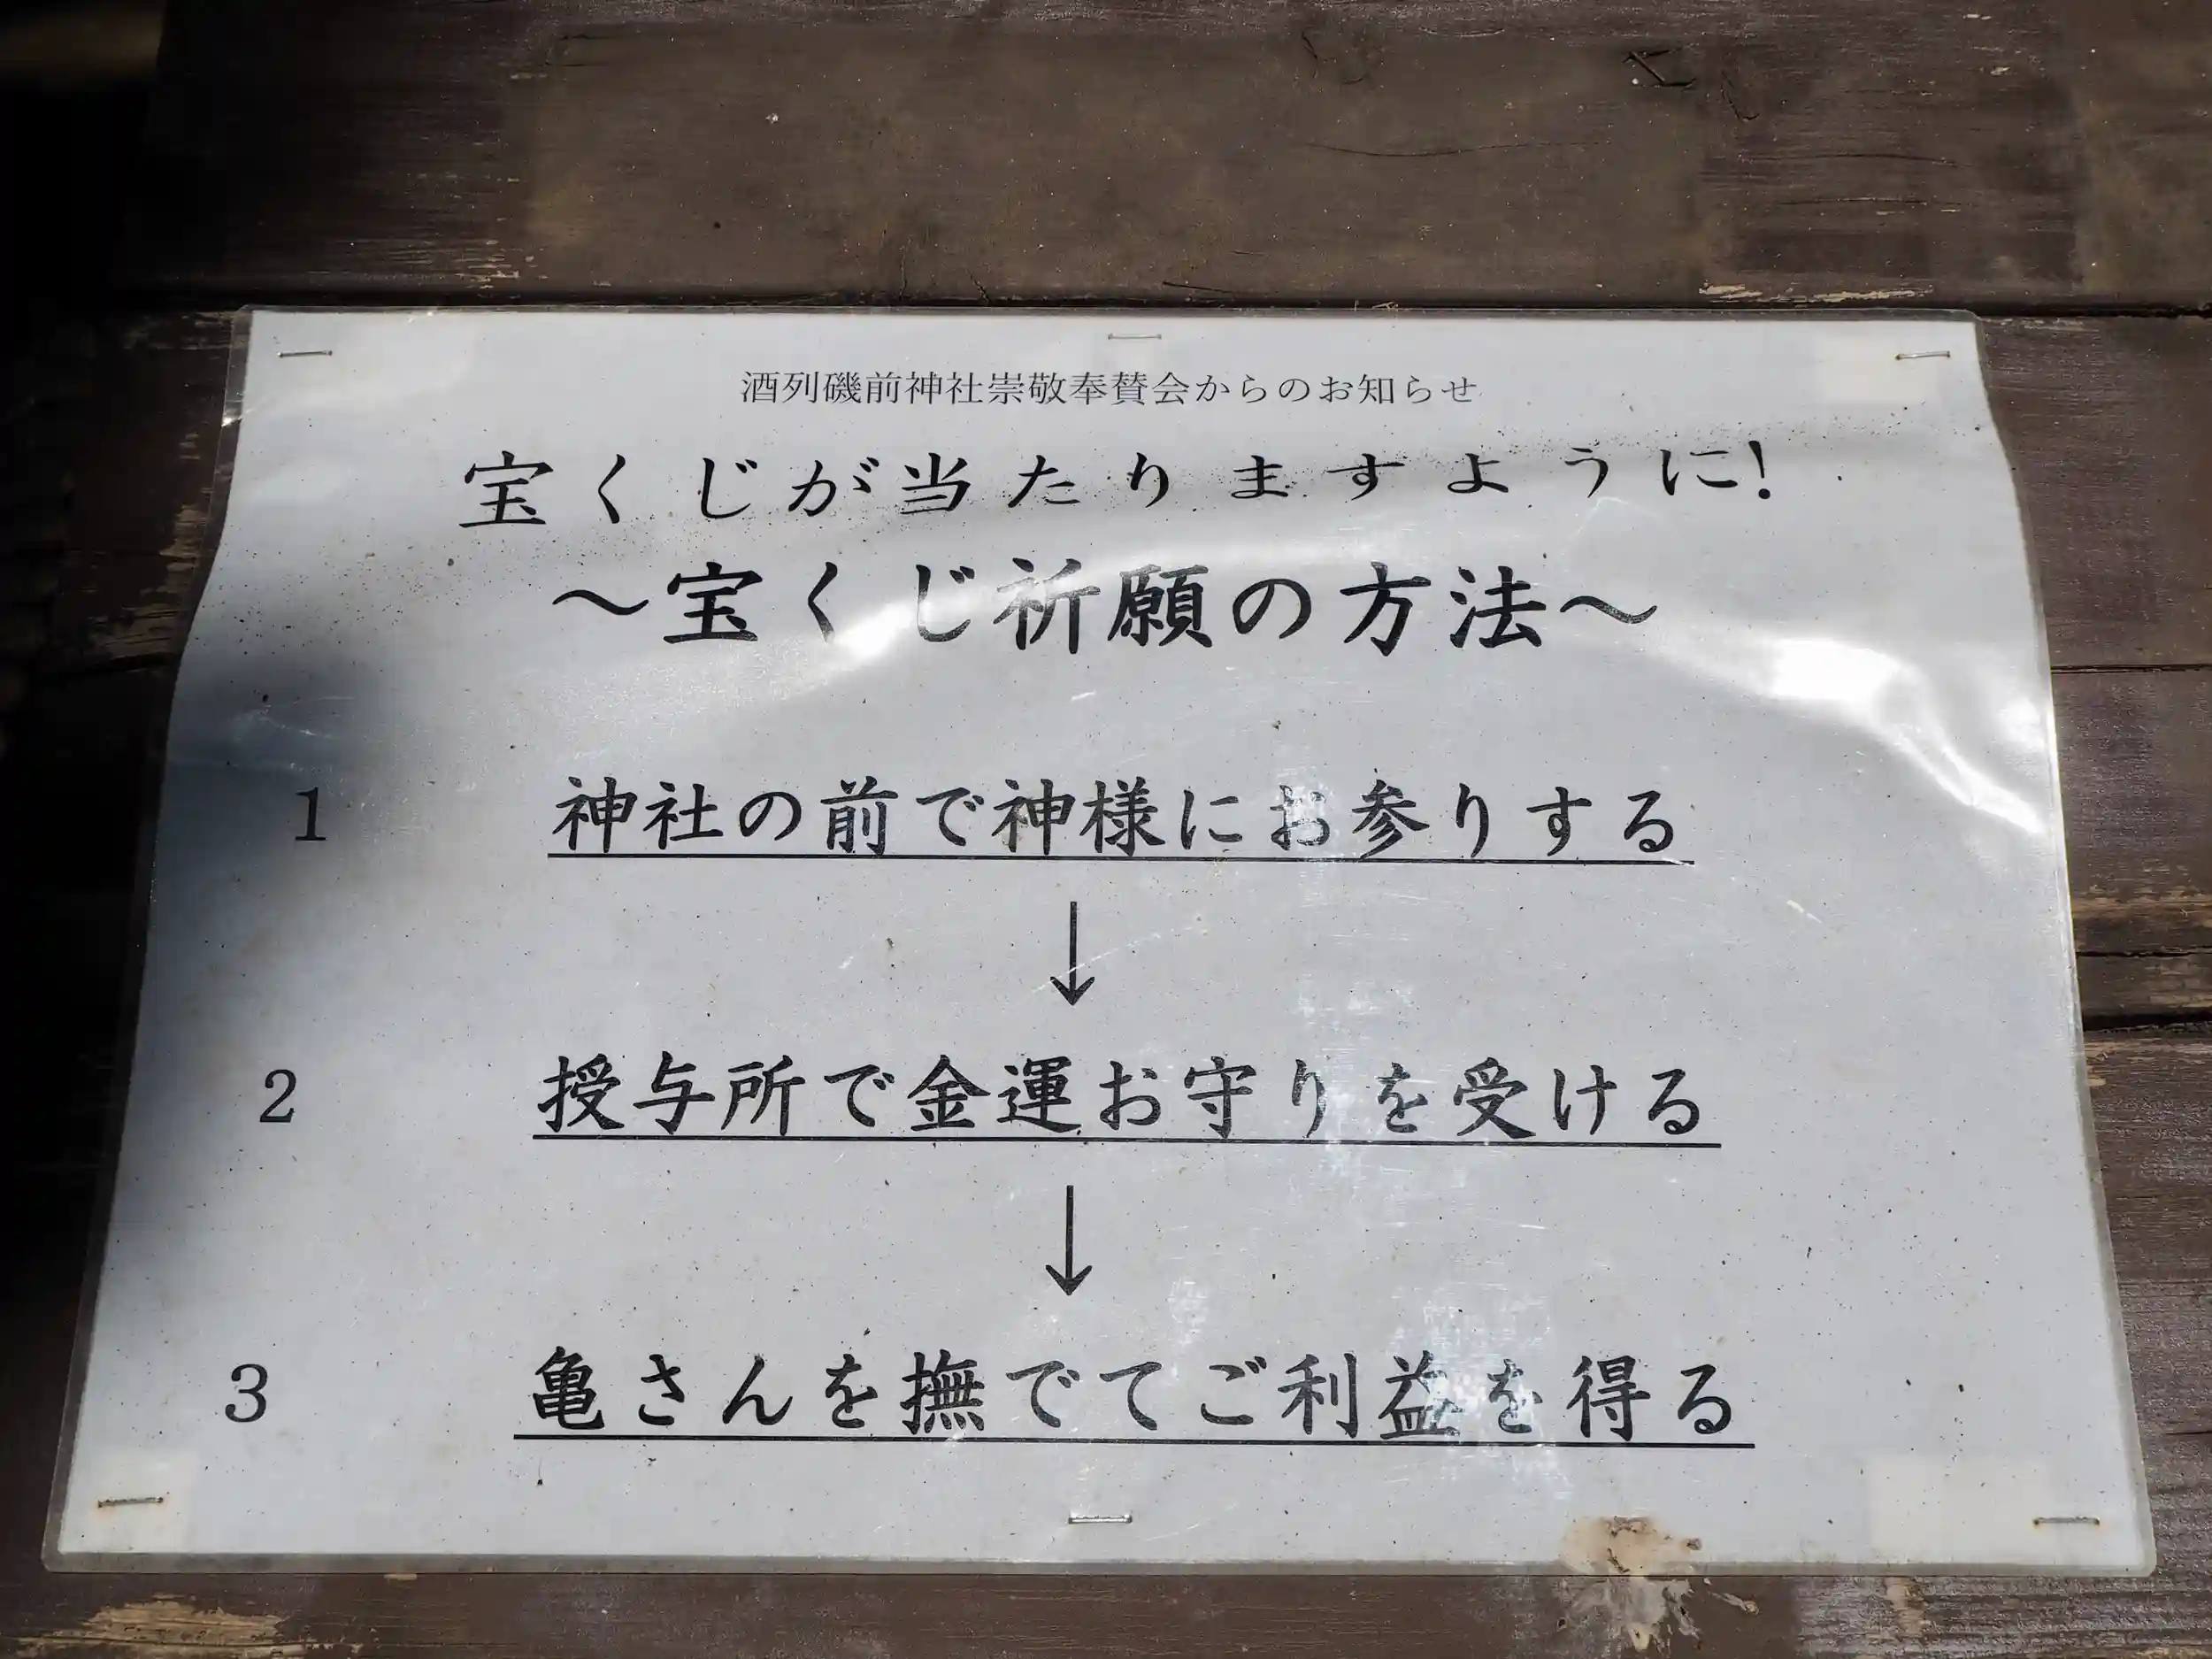 酒列磯前神社崇敬奉賛会からのお知らせ
宝くじが当たりますように!
～宝くじ祈願の方法～
1 神社の前で神様にお参りする
↓
2 授与所で金運お守りを受ける
↓
3 亀さんを撫でてご利益を得る